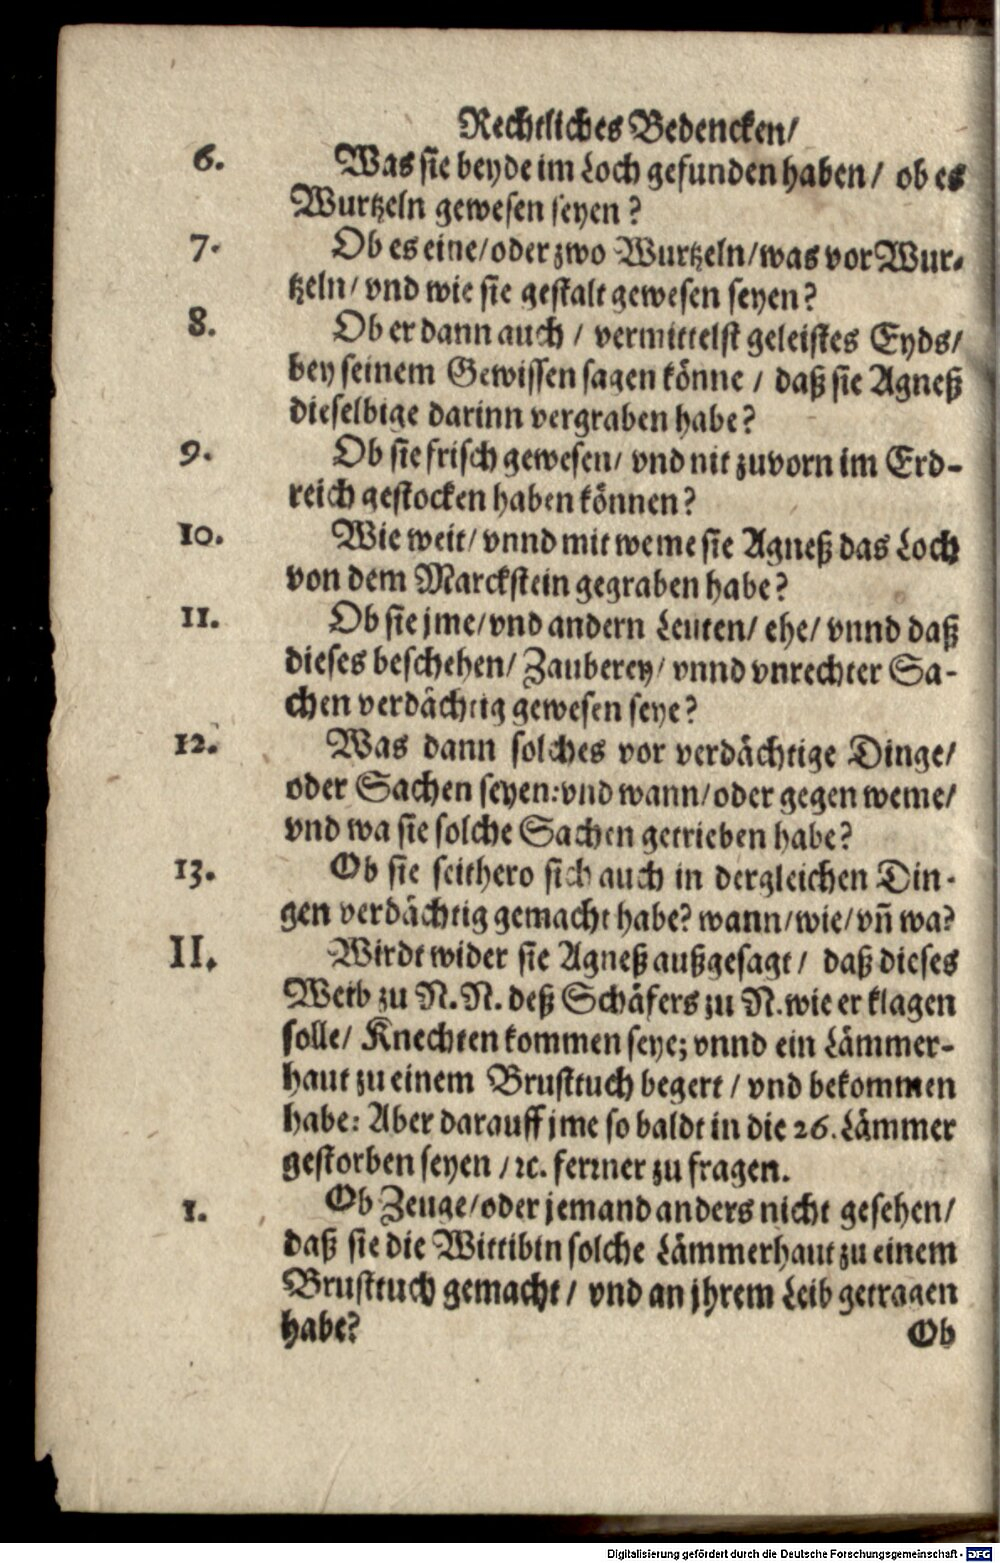 Rechtliches Bedencken/
6. Was sie beyde im Loch gefunden haben / ob es
Wurtzeln gewesen seyen ?
7. Ob es eine/oder zwo Wurtzeln/was vor Wur-
tzeln/ vnd wie sie gestalt gewesen seyen?
8. Ob er dann auch / vermittelst geleistes Eyds/
bey seinem Gewissen sagen könne / daß sie Agneß
dieselbige darinn vergraben habe?
9. Ob sie frisch gewesen/ vnd nit zuvorn im Erd-
reich gestocken haben können?
10. Wie weit/ vnnd mit weme sie Agneß das Loch
von dem Marckstein gegraben habe?
11. Ob sie jme/vnd andern Leuten/ ehe/ vnnd daß
dieses beschehen/ Zauberey/ vnnd vnrechter Sa-
chen verdächtig gewesen seye?
12. Was dann solches vor verdächtige Dinge/
oder Sachen seyen:vnd wann/oder gegen weme/
vnd wa sie solche Sachen getrieben habe?
13. Ob sie seithero sich auch in dergleichen Din-
gen verdächtig gemacht habe? wann/wie/vñ wa?
II. Wirdt wider sie Agneß außgesagt / daß dieses
Weib zu N. N. deß Schäfers zu N. wie er klagen
solle/ Knechten kommen seye; vnnd ein Lämmer-
haut zu einem Brusttuch begert / vnd bekommen
habe: Aber darauff jme so baldt in die 26. Lämmer
gestorben seyen /ꝛc. ferrner zu fragen.
1. Ob Zeuge/oder jemand anders nicht gesehen/
daß sie die Wittibin solche Lämmerhaut zu einem
Brusttuch gemacht / vnd an jhrem Leib getragen
habe?
Ob
Digitalisierung gefördert durch die Deutsche Forschungsgemeinschaft - DFG